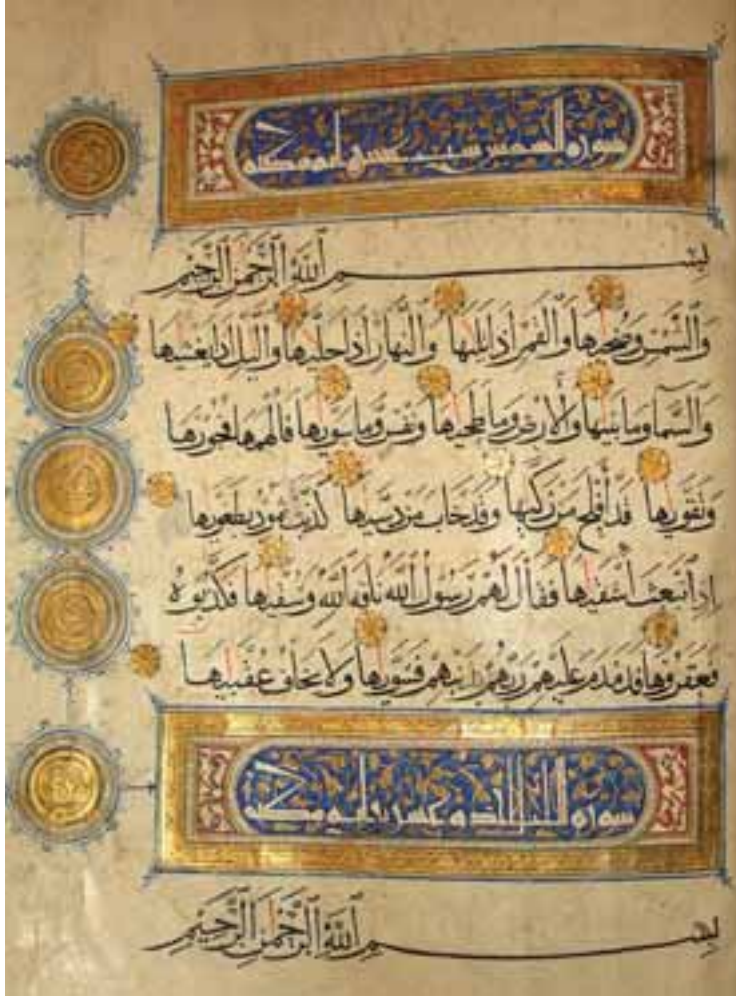 سورة الشمس ست عشر اية مكية
بِسْمِ اللَّهِ الرَّحْمَنِ الرَّحِيمِ
وَالشَّمْسِ وَضُحَيهَا وَالْقَمَرِ إِذَا تَلَيهَا وَالنَّهَارِ إِذَا جَلَّيهَا وَالَّيْلِ إِذَا يَغْشَيهَا
وَالسَّمَاءِ وَمَا بَنَيهَا وَالْأَرْضِ وَمَا طَحَيهَا وَنَفْسٍ وَمَا سَوَّيهَا فَأَلْهَمَهَا فُجُورَهَا
وَتَقْوَيهَا قَدْ أَفْلَحَ مَنْ زَكَّيهَا وَقَدْ خَابَ مَنْ دَسَّيهَا كَذَّبَتْ ثَمُودُ بِطَغْوَيهَا
إِذِ انْبَعَثَ أَشْقَيهَا فَقَالَ لَهُمْ رَسُولُ اللَّهِ نَاقَةَ اللَّهِ وَسُقْيَهَا فَكَذَّبُوهُ
فَعَقَرُوهَا فَدَمْدَمَ عَلَيْهِمْ رَبُّهُمْ بِذَنْبِهِمْ فَسَوَّيهَا وَلَا يَخَافُ عُقْبَيهَا
سورة الليل احدى وعشرين اية مكية
بِسْمِ اللَّهِ الرَّحْمَنِ الرَّحِيمِ